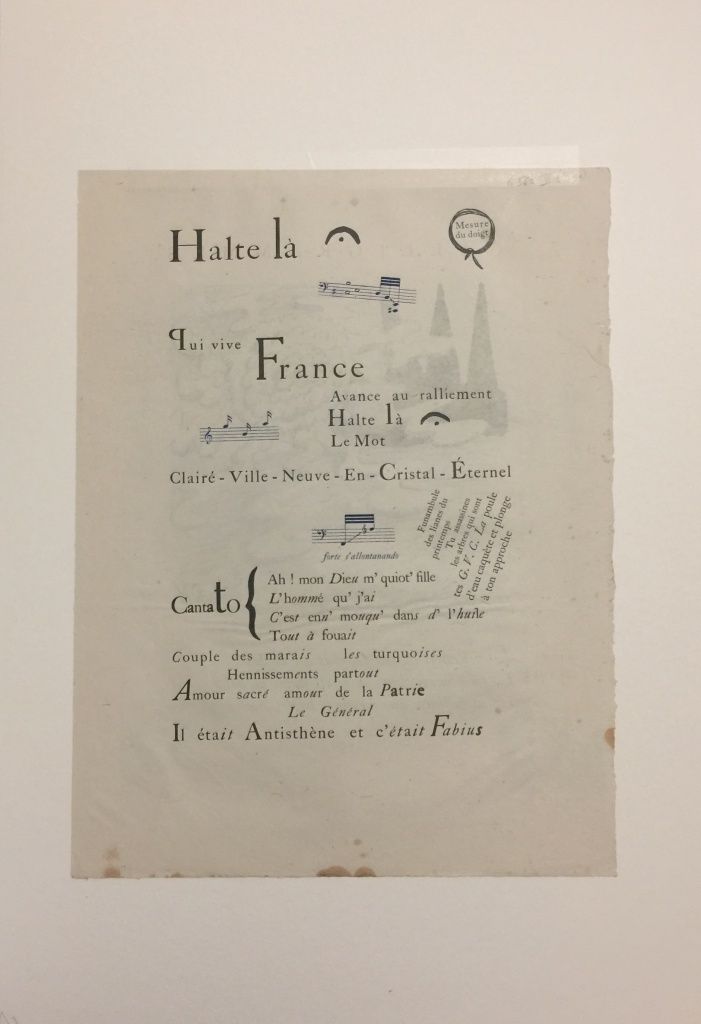 Halte là
Mesure
du doigt
Qui vive
France
Avance au ralliement
Halte là
Le Mot
Clairé - Ville - Neuve - En - Cristal - Éternel
Funambule
des lianes du
printemps
Tu assassines
les arbres qui sont
tes G. V. C. La poule
d'eau caquète et plonge
à ton approche
forte s'allontanando
Cantato
Ah ! mon Dieu m' quiot' fille
L'hommé qu' j'ai
C'est enn' mouqu' dans d' l'huile
Tout à fouait
Couple des marais les turquoises
Hennissements partout
Amour sacré amour de la Patrie
Le Général
Il était Antisthène et c'était Fabius